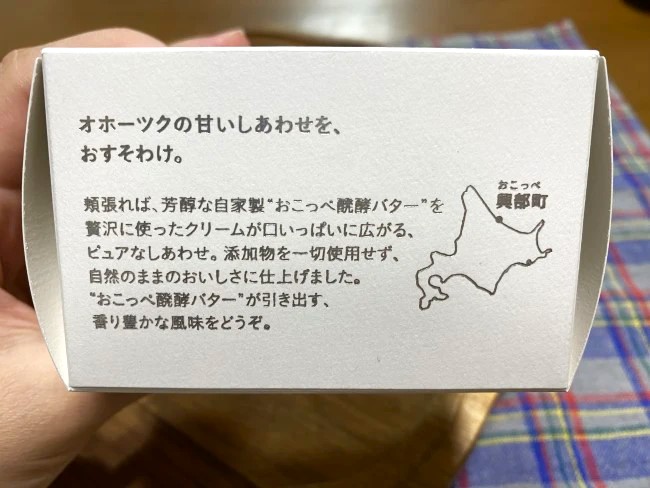 オホーツクの甘いしあわせを、
おすそわけ。
頬張れば、芳醇な自家製“おこっぺ醗酵バター”を
贅沢に使ったクリームが口いっぱいに広がる、
ピュアなしあわせ。添加物を一切使用せず、
自然のままのおいしさに仕上げました。
“おこっぺ醗酵バター”が引き出す、
香り豊かな風味をどうぞ。
おこっぺ
興部町